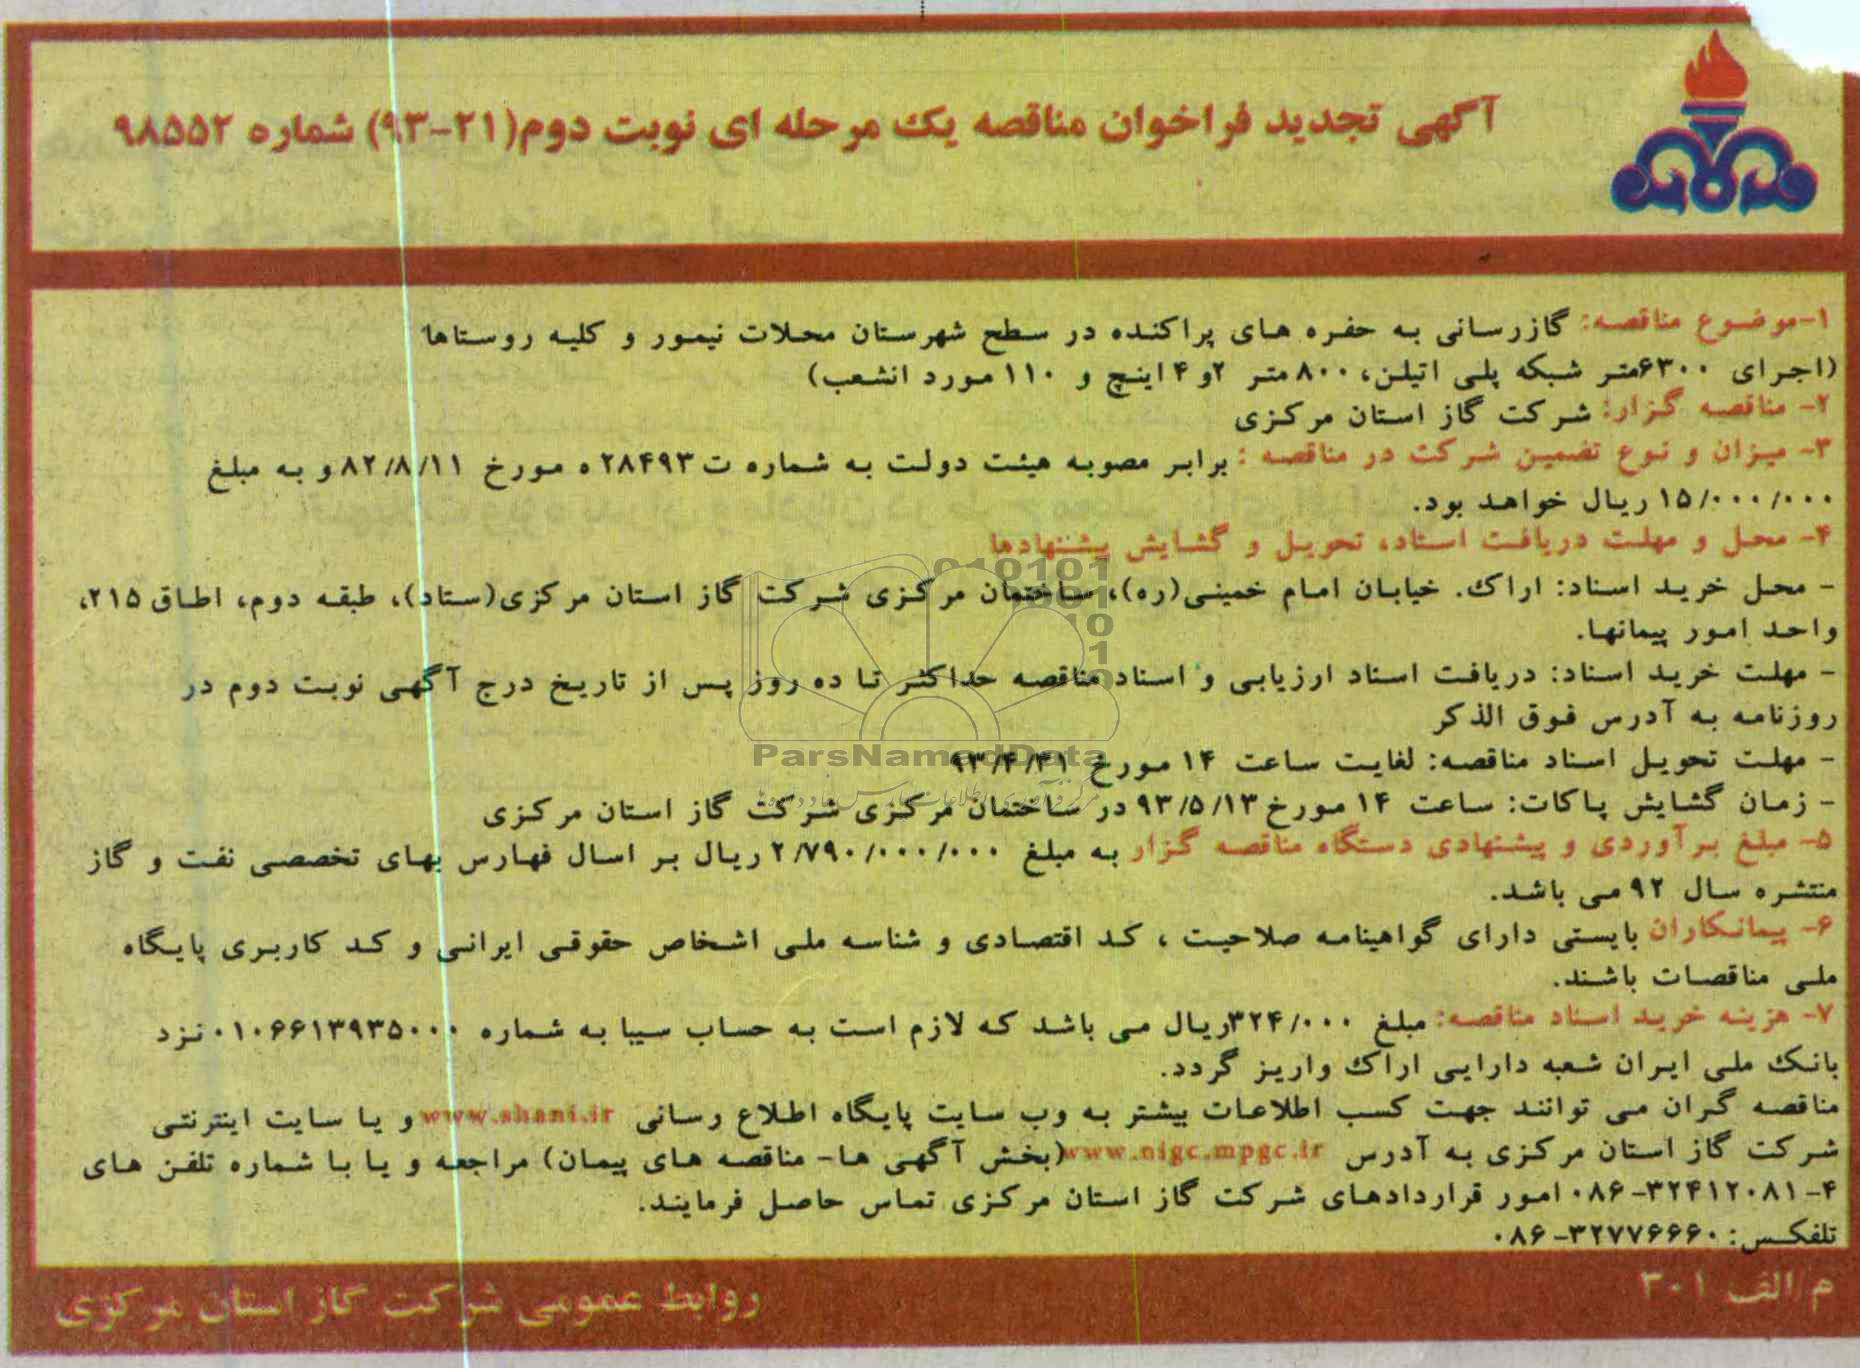 آگهی تجدید فراخوان مناقصه یک مرحله ای نوبت دوم(۲۱-۹۳) شماره ۹۸۵۵۲
۱-موضوع مناقصه: گازرسانی به حفره های پراکنده در سطح شهرستان محلات نیمور و کلیه روستاها
(اجرای ۶۳۰۰متر شبکه پلی اتیلن، ۸۰۰ متر ۲و ۴ اینچ و ۱۱۰ مورد انشعب)
۲- مناقصه گزار: شرکت گاز استان مرکزی
۳- میزان و نوع تضمین شرکت در مناقصه : برابر مصوبه هیئت دولت به شماره ت ۲۸۴۹۳ ه مورخ ۸۲/۸/۱۱ و به مبلغ
۱۵/۰۰۰/۰۰۰ ریال خواهد بود.
۴- محل و مهلت دریافت اسناد، تحویل و گشایش پیشنهادها
010101
- محل خرید اسناد: اراک. خیابان امام خمینی(ره)، ساختمان مرکزی شرکت گاز استان مرکزی(ستاد)، طبقه دوم، اطاق ۲۱۵،
واحد امور پیمانها.
- مهلت خرید اسناد: دریافت اسناد ارزیابی و اسناد مناقصه حداکثر تا ده روز پس از تاریخ درج آگهی نوبت دوم در
روزنامه به آدرس فوق الذکر
ParsNamadData
- مهلت تحویل اسناد مناقصه: لغایت ساعت ۱۴ مورخ
- زمان گشایش پاکات: ساعت ۱۴ مورخ ۹۳/۵/۱۳ در ساختمان مرکزی شرکت گاز استان مرکزی
۵- مبلغ برآوردی و پیشنهادی دستگاه مناقصه گزار به مبلغ ۲/۷۹۰/۰۰۰/۰۰۰ ریال بر اسال فهارس بهای تخصصی نفت و گاز
منتشره سال ۹۲ می باشد.
۶- پیمانکاران بایستی دارای گواهینامه صلاحیت ، کد اقتصادی و شناسه ملی اشخاص حقوقی ایرانی و کد کاربری پایگاه
ملی مناقصات باشند.
۷- هزینه خرید اسناد مناقصه: مبلغ ۳۲۴/۰۰۰ریال می باشد که لازم است به حساب سیبا به شماره ۰۱۰۶۶۱۳۹۳۵۰۰۰ نزد
بانک ملی ایران شعبه دارایی اراک واریز گردد.
مناقصه گران می توانند جهت کسب اطلاعات بیشتر به وب سایت پایگاه اطلاع رسانی www.shani.ir و یا سایت اینترنتی
شرکت گاز استان مرکزی به آدرس www.nigc.mpgc.ir(بخش آگهی ها- مناقصه های پیمان) مراجعه و یا با شماره تلفن های
۴-۰۸۶-۳۲۴۱۲۰۸۱ امور قراردادهای شرکت گاز استان مرکزی تماس حاصل فرمایند.
تلفکس: ۰۸۶-۳۲۷۷۶۶۶۰
م/الف ۳۰۱
روابط عمومی شرکت گاز استان مرکزی